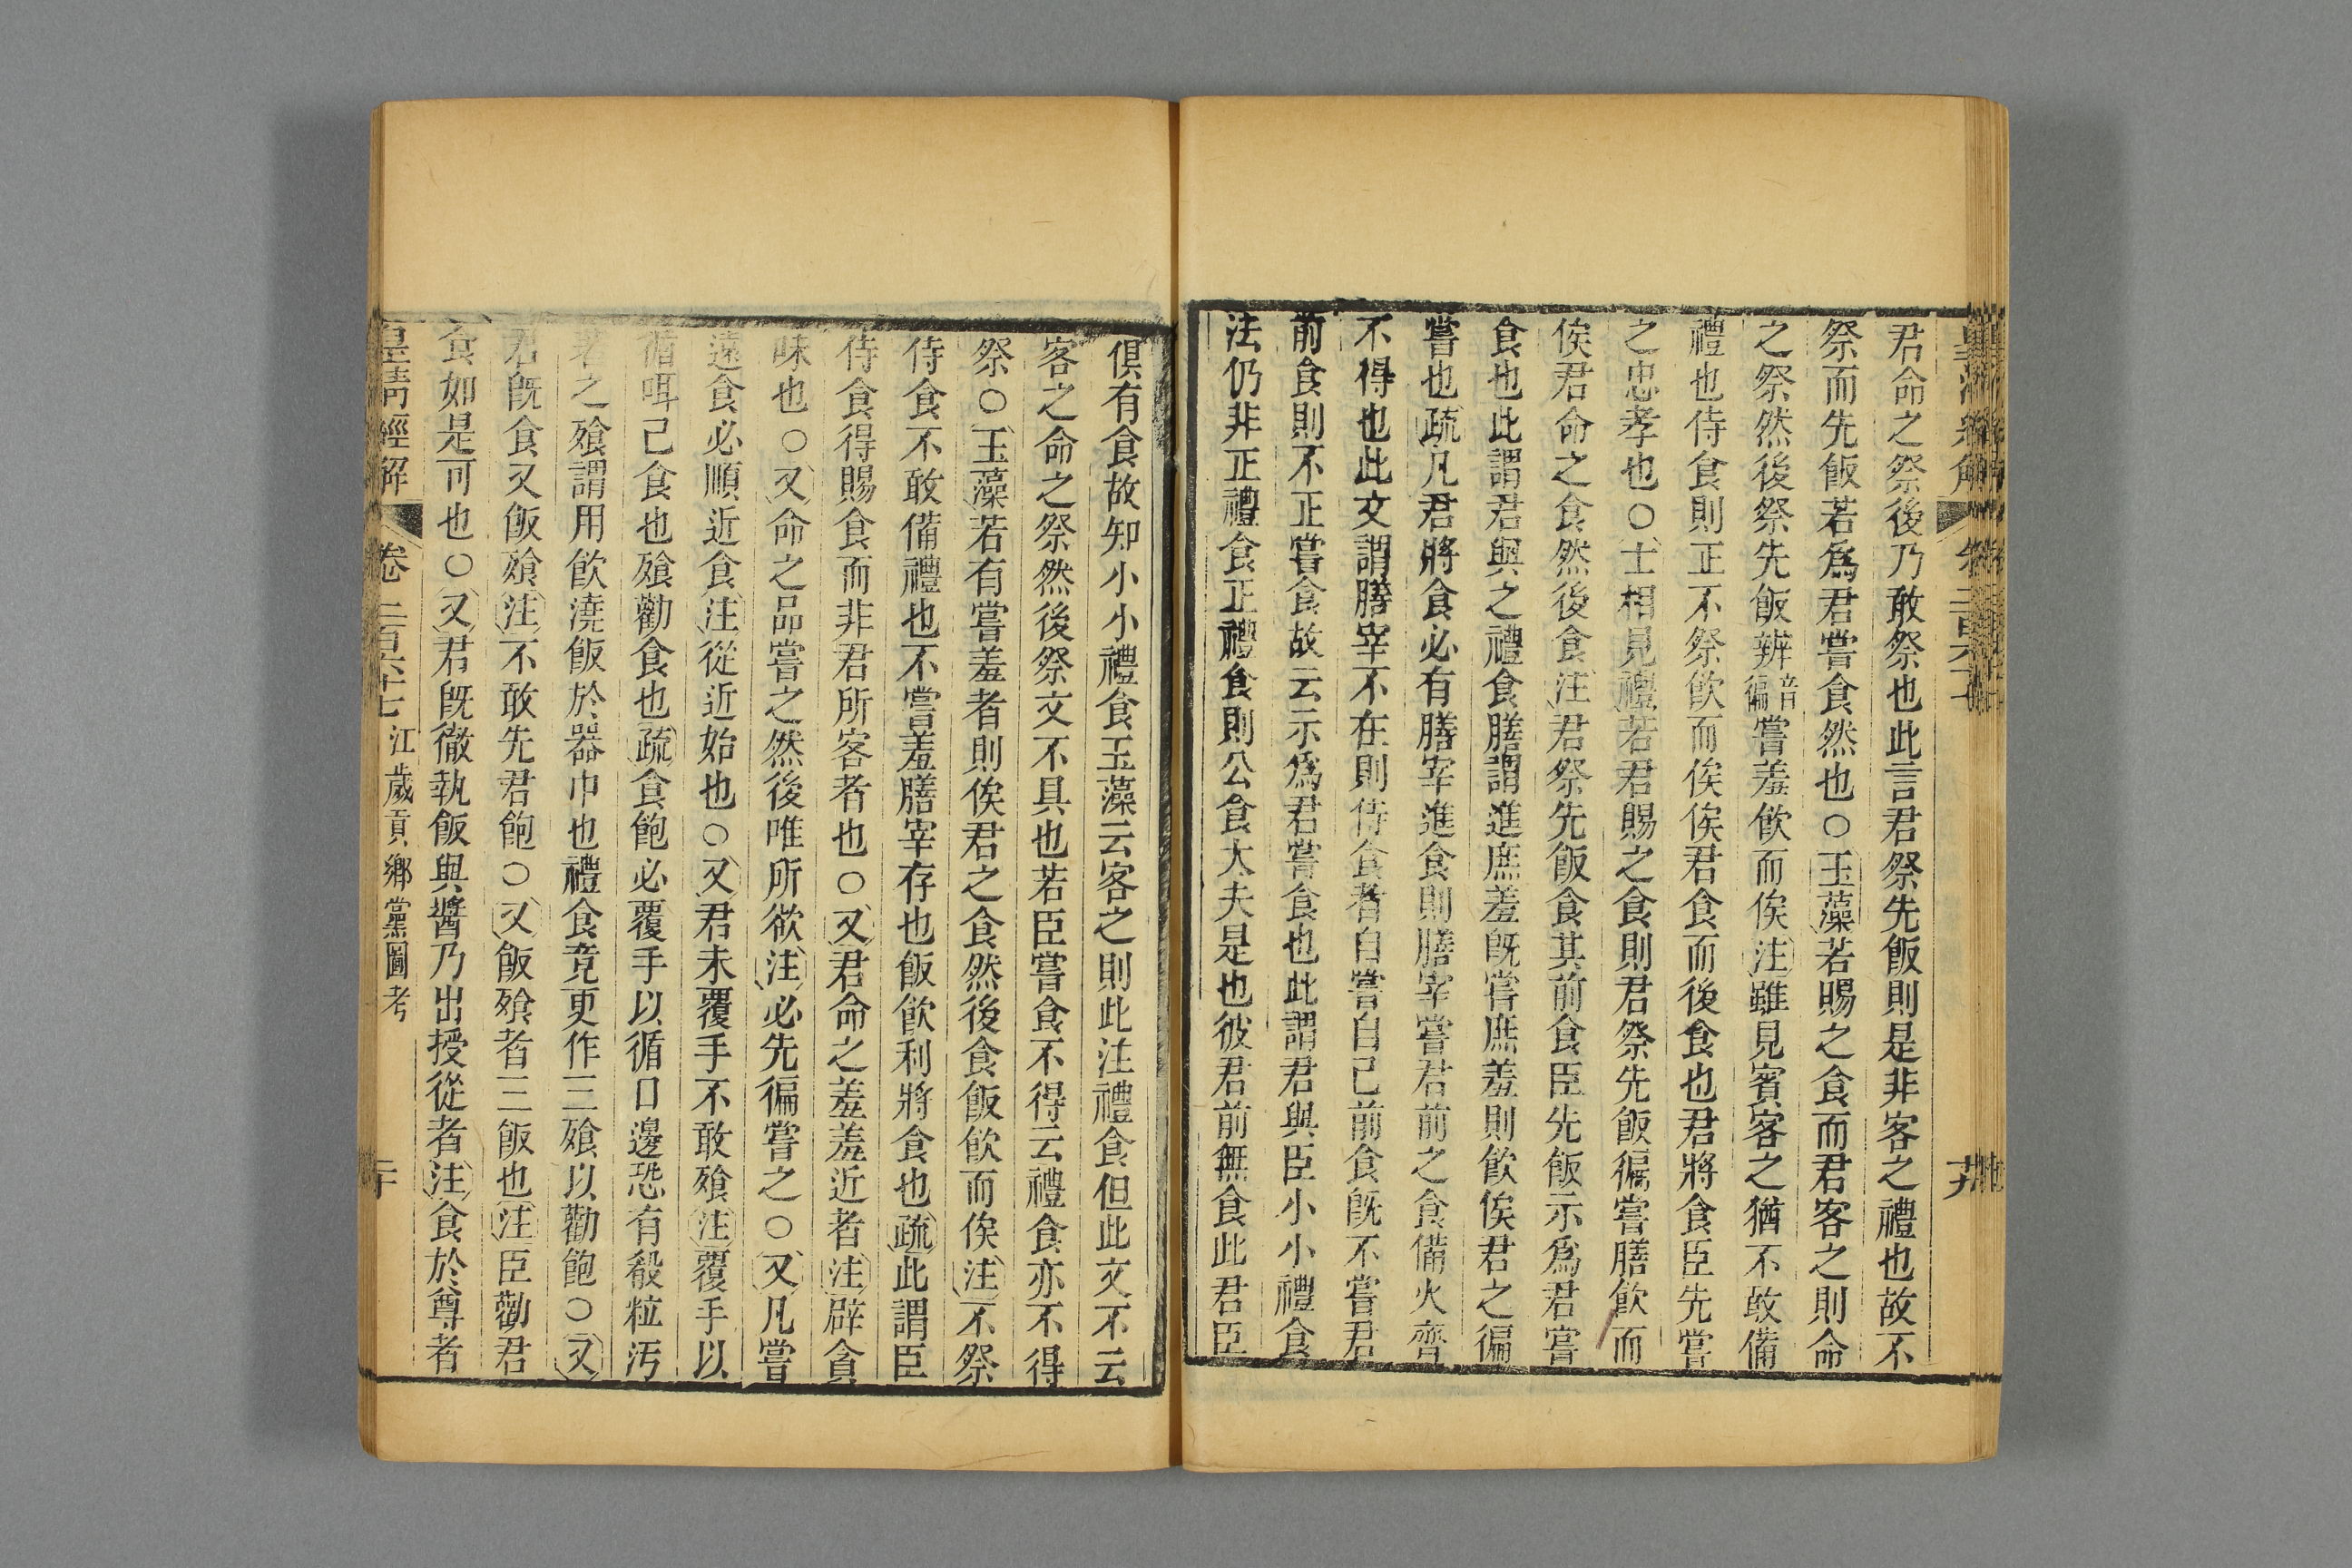 君命之祭後乃敢祭也此言君祭先飯則是非客之禮也故不
祭而先飯若爲君嘗食然也○玉藻若賜之食而君客之則命
之祭然後祭先飯辨音徧嘗羞飮而俟注雖見賓客之猶不敢備
禮也侍食則正不祭飮而俟俟君食而後食也君將食臣先嘗
之忠孝也○士相見禮若君賜之食則君祭先飯徧嘗膳飮而
俟君命之食然後食注君祭先飯食其前食臣先飯示爲君嘗
食也此謂君與之禮食膳謂進庶羞旣嘗庶羞則飮俟君之徧
嘗也疏凡君將食必有膳宰進食則膳宰嘗君前之食備火齊
不得也此文謂膳宰不在則侍食者自嘗自己前食旣不嘗君
前食則不正嘗食故云示爲君嘗食也此謂君與臣小小禮食
法仍非正禮食正禮食則公食大夫是也彼君前無食此君臣
俱有食故知小小禮食玉藻云客之則此注禮食但此文不云
客之命之祭然後祭文不具也若臣嘗食不得云禮食亦不得
祭○玉藻若有嘗羞者則俟君之食然後食飯飮而俟注不祭
侍食不敢備禮也不嘗羞膳宰存也飯飮利將食也疏此謂臣
侍食得賜食而非君所客者也○又君命之羞羞近者注辟貪
味也○又命之品嘗之然後唯所欲注必先徧嘗之○又凡嘗
遠食必順近食注從近始也○又君未覆手不敢飱注覆手以
循咡己食也飱勸食也疏食飽必覆手以循口邊恐有殽粒汚
著之飱謂用飮澆飯於器巾也禮食竟更作三飱以勸飽○又
君旣食又飯飱注不敢先君飽○又飯飱者三飯也注臣勸君
食如是可也○又君旣徹執飯與醬乃出授從者注食於尊者
皇淸經解 卷二百六十七 江歲貢鄉黨圖考 二十